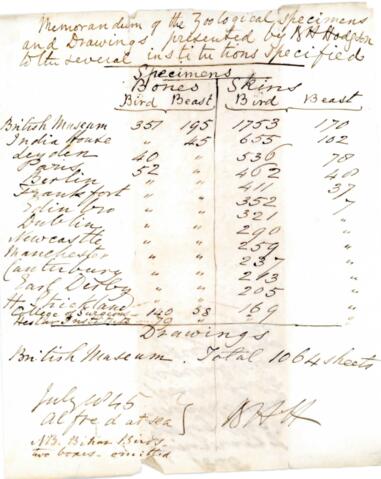 Memorandum of the Zoological Specimens
and Drawings presented by B H Hodgson
to the several institutions specified
Specimens
Bones Skins
Bird Beast Bird Beast
British Museum 351 195 1753 170
India House " 45 655 102
Leyden 40 " 536 78
Paris 52 " 462 40
Berlin " " 411 37
Frankfort " " 352 7
Edinbro " " 321 "
Dublin " " 290 "
Newcastle " " 259 "
Manchester " " 237 "
Canterbury " " 213 "
Earl Derby " " 205 "
H Strickland " " 169 "
College of Surgeons 140 58 "
Drawings
British Museum . Total 1064 sheets
July 1845
Alfred at sea } B H H
NB. Bihar Birds
two boxes omitted